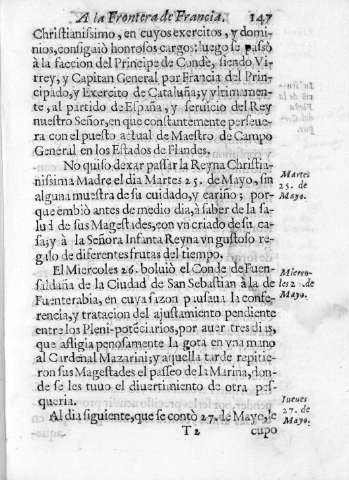 A la Frontera de Francia. 147
Christianissimo, en cuyos exercitos, y domi-
nios, consiguiò honrosos cargos: luego se passò
à la faccion del Principe de Conde, siendo Vi-
rrey, y Capitan General por Francia del Prin-
cipado, y Exercito de Cataluña; y vltimamen-
te, al partido de España, y seruicio del Rey
nuestro Señor, en que constantemente perseue-
ra con el puesto actual de Maestro de Campo
General en los Estados de Flandes.
No quiso dexar passar la Reyna Christia-
nissima Madre el dia Martes 25. de Mayo, sin
alguna muestra de su cuidado, y cariño; por-
que embiò antes de medio dia, à saber de la sa-
lud de sus Magestades, con vn criado de su ca-
sa; y à la Señora Infanta Reyna vn gustoso re-
galo de diferentes frutas del tiempo.
Martes
25. de
Mayo.
El Miercoles 26. boluiò el Conde de Fuen-
saldaña de la Ciudad de San Sebastian à la de
Fuenterabia, en cuya sazon pausaua la confe-
rencia, y tratacion del ajustamiento pendiente
entre los Pleni-potēciarios, por auer tres dias,
que afligia penosamente la gota en vna mano
al Cardenal Mazarini; y aquella tarde repitie-
ron sus Magestades el passeo de la Marina, don-
de se les tuuo el diuertimiento de otra pes-
queria.
Miercu-
les 2 .de
Mayo.
Al dia siguiente, que se contò 27. de Mayo, se
Jueues
27. de
Mayo.
T 2 cupo